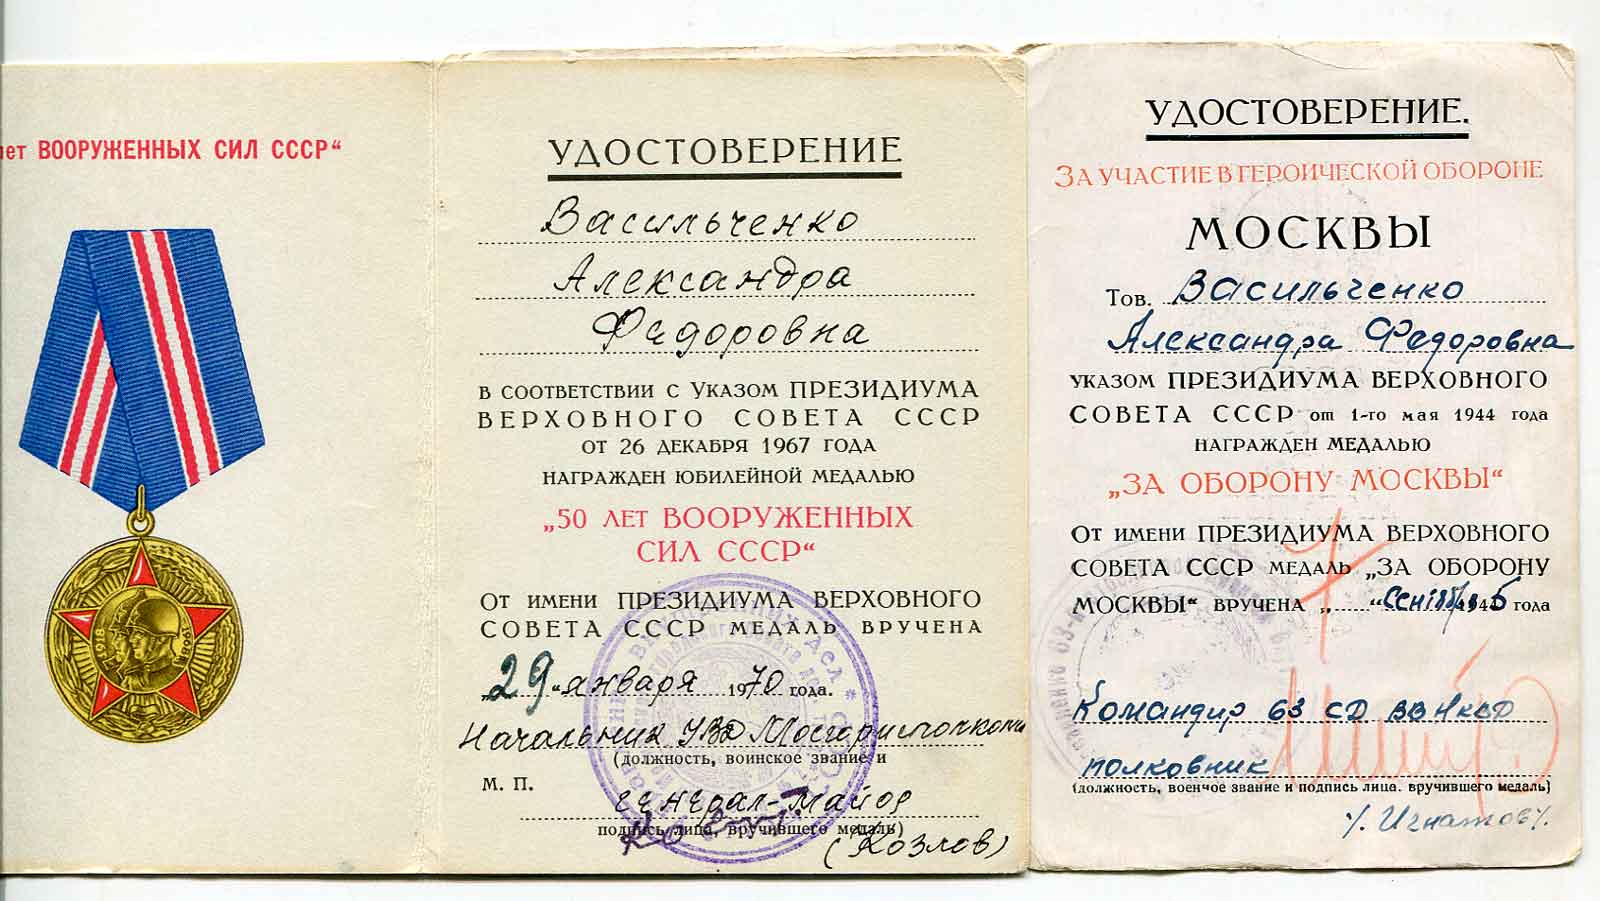 лет ВООРУЖЕННЫХ СИЛ СССР“
1918
1967
УДОСТОВЕРЕНИЕ
Васильченко
Александра
Федоровна
В СООТВЕТСТВИИ С УКАЗОМ ПРЕЗИДИУМА
ВЕРХОВНОГО СОВЕТА СССР
ОТ 26 ДЕКАБРЯ 1967 ГОДА
НАГРАЖДЕН ЮБИЛЕЙНОЙ МЕДАЛЬЮ
„50 ЛЕТ ВООРУЖЕННЫХ
СИЛ СССР“
ОТ ИМЕНИ ПРЕЗИДИУМА ВЕРХОВНОГО
СОВЕТА СССР МЕДАЛЬ ВРУЧЕНА
„29“ января 1970 года.
Начальник УВД Мосгорисполкома
(должность, воинское звание и
М. П.
генерал-майор
подпись лица, вручившего медаль)
(Козлов)
УДОСТОВЕРЕНИЕ.
ЗА УЧАСТИЕ В ГЕРОИЧЕСКОЙ ОБОРОНЕ
МОСКВЫ
Тов. Васильченко
Александра Федоровна
УКАЗОМ ПРЕЗИДИУМА ВЕРХОВНОГО
СОВЕТА СССР от 1-го мая 1944 года
НАГРАЖДЕН МЕДАЛЬЮ
„ЗА ОБОРОНУ МОСКВЫ“
ОТ ИМЕНИ ПРЕЗИДИУМА ВЕРХОВНОГО
СОВЕТА СССР МЕДАЛЬ „ЗА ОБОРОНУ
МОСКВЫ“ ВРУЧЕНА „ “ сентября 1945 года
Командир 63 СД ВВ НКВД
полковник
(должность, военное звание и подпись лица, вручившего медаль)
/. Игнатов/.